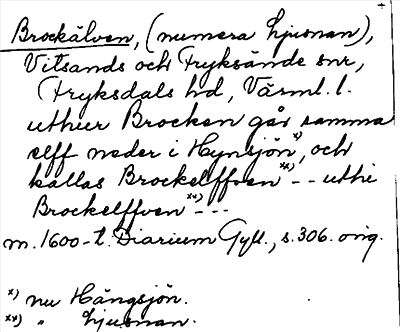 Brockälven, (numera Ljusnan),
Vitsands och Fryksände snr,
Fryksdals hd, Värml. l.
uthur Brocken går samma
elff neder i Hynsjön x), och
kallas Brockelffven xx) - - uthi
Brockelffven xx) - - -
m. 1600-t. Diarium Gyll., s. 306. orig.
x) nu Hängsjön.
xx) " Ljusnan.